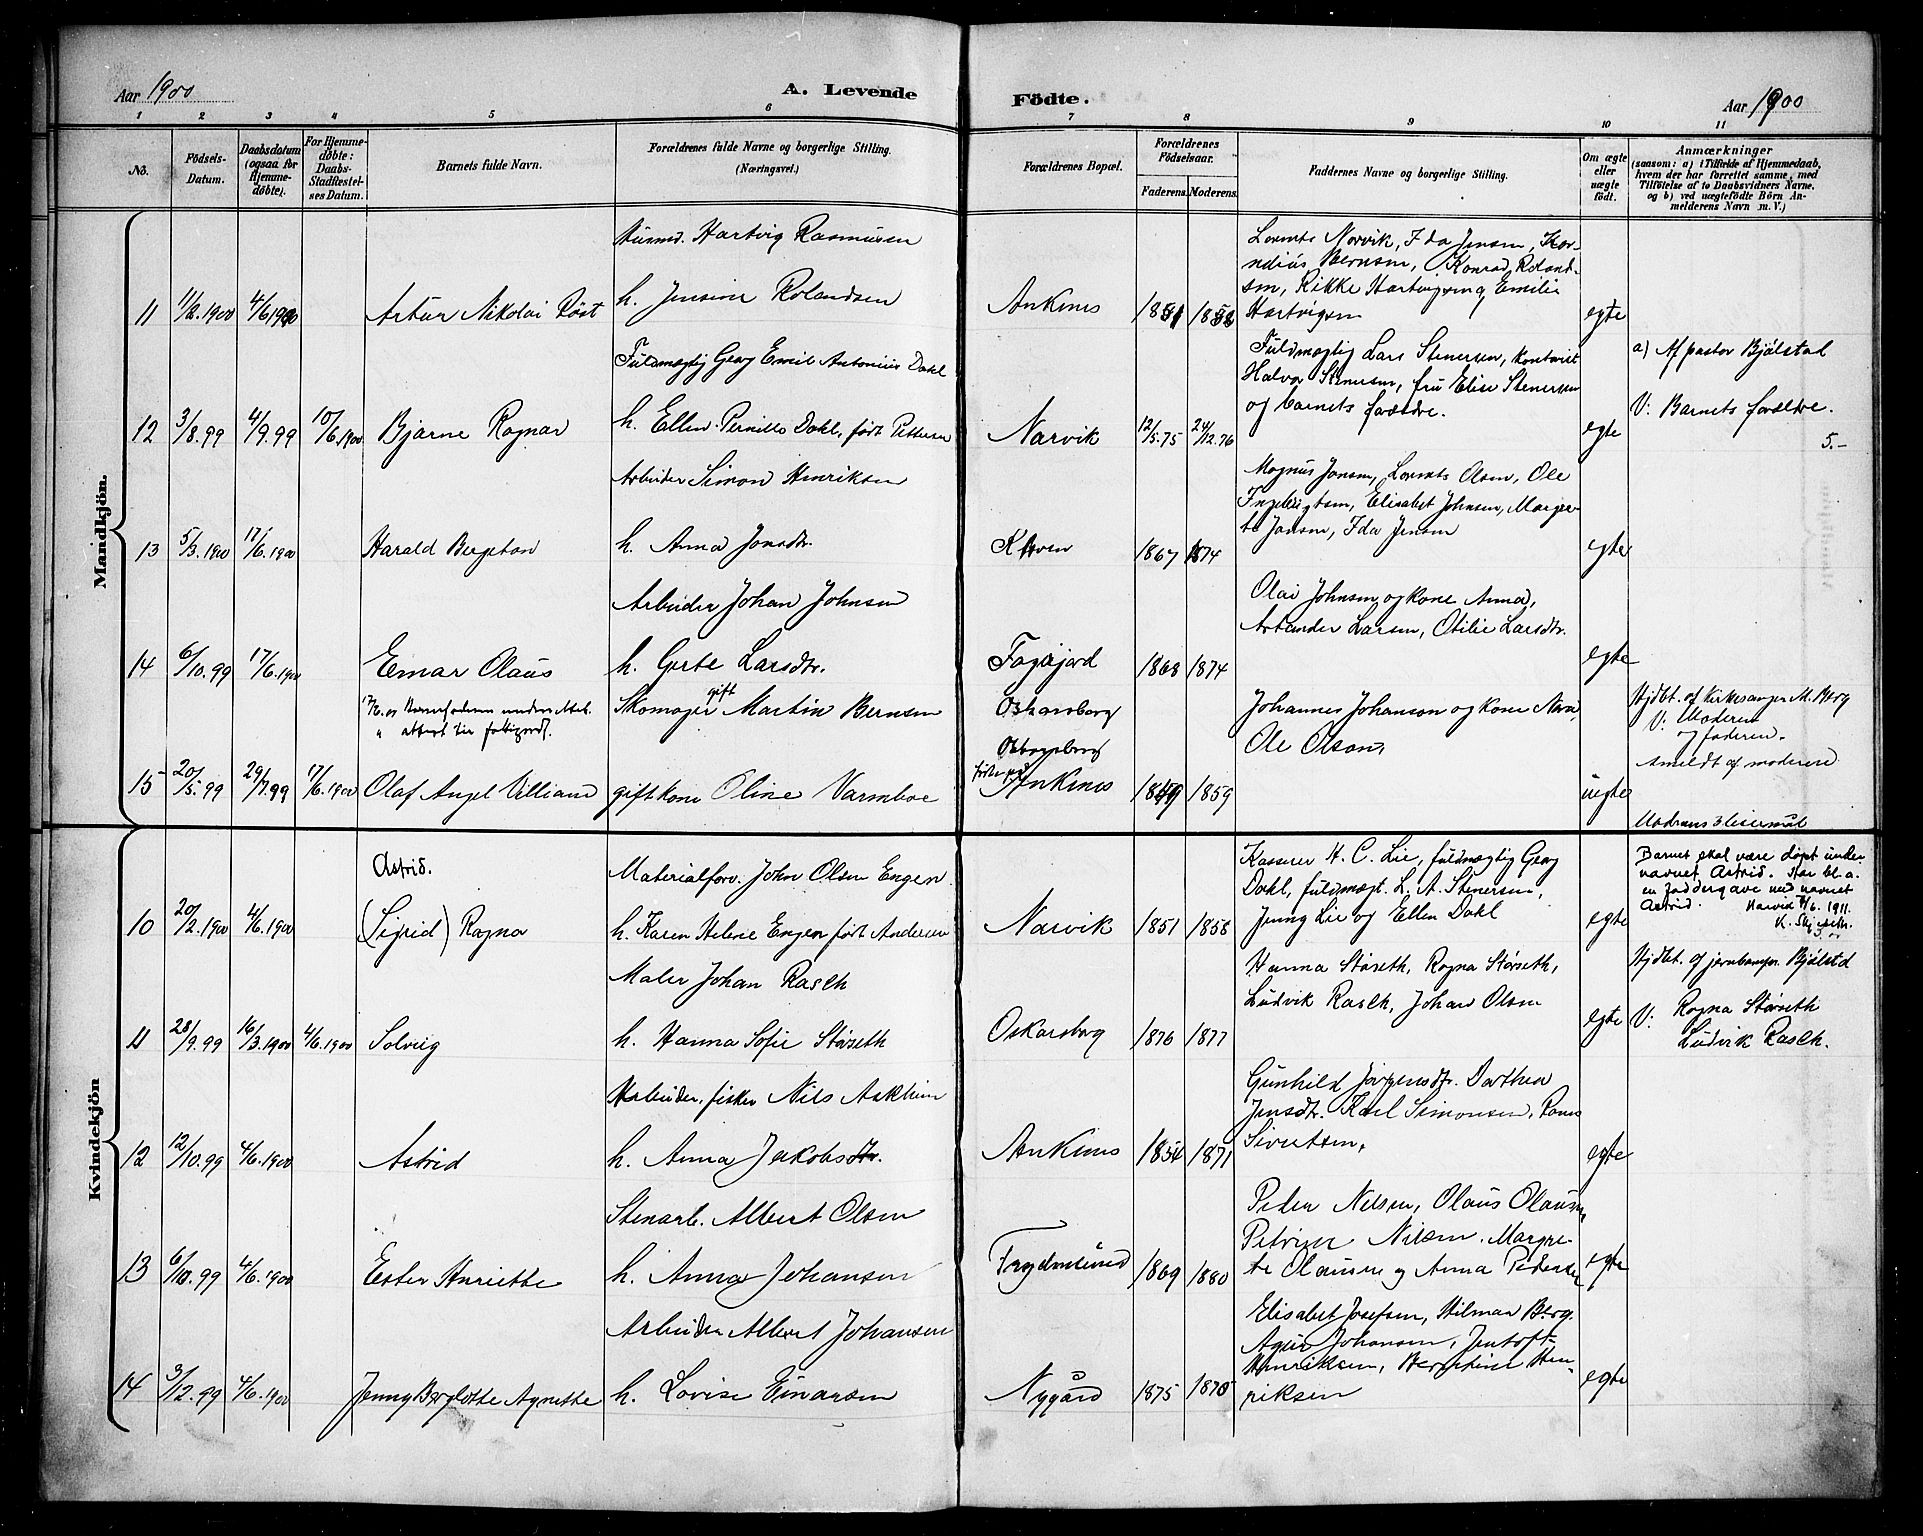 Aar 1900
A. Levende
Födte.
Aar 1900
1 2 3 4 5 6 7 8 9 10 11
No.
Födsels-Datum.
Daabsdatum (ogsaa for Hjemmedöbte).
For Hjemmedöbte: Daabs-Stadfestelses Datum.
Barnets fulde Navn.
Forældrenes fulde Navne og borgerlige Stilling.
(Næringsvei.)
Forældrenes Bopæl.
Forældrenes Födselsaar.
Faderens. Moderens.
Faddernes Navne og borgerlige Stilling.
Om ægte eller uægte födt.
Anmærkninger
(saasom: a) i Tilfælde af Hjemmedaab, hvem der har forrettet samme, med Tilföielse af to Daabsvidners Navne. og b) ved uægtefödte Börn Anmelderens Navn m. V.)
Mandkjön.
Husmd. Hartvig Rasmussen
11 1/2.1900 4/6 1900 Artur Nikolai Röst h. Jensine Rolandsen Ankenes
Lorents Norvik, Ida Jensen, Kor-
nelius Bernsen, Konrad Roland-
sen, Rikke Hartvigsen, Emilie
Hartvigsen egte
Fuldmægtig Georg Emil Antonius Dahl
12 3/8.99 4/9.99 10/6.1900 Bjarne Ragnar h. Ellen Pernille Dahl, født Pettersen Narvik 12/5.75 24/12.76
Fuldmægtig Lars Stenersen, kontorist
Halvor Stenersen, fru Elise Stenersen
og barnets forældre. egte
a) Af pastor Bjölstad
V: Barnets forældre.
5.-
Arbeider Simon Henriksen
13 5/3.1900 17/6.1900 Harald Bergeton h. Anna Jonsdtr. 1867 1874
Magnus Jensen, Lorents Olsen, Ole
Ingebrigtsen, Elisabet Johnsen, Margre-
te Jonsen, Ida Jensen egte
Arbeider Johan Johnsen
14 6/10.99 17/6.1900 Einar Olaus h. Gerte Larsdtr. Fagerjord 1868 1874
Olai Johnsen og kone Anna,
Larsen, Otilie Larsdtr. egte
Skomager gift Martin Bernsen Oskarsborg
15 20/5.99 29/7.99 17/6.1900 Olaf Angel Villiand gift kone Oline Varmboe Ankenes 1859
Johannes Johanson og kone
Ole Olson, uegte
Hjdbt. af Kirkesanger M. Berg
V: Moderen
og faderen.
Anmeldt af moderen
Modrens 3 leiermål
Kvindekjön
Astrid.
Materialforv. John Olsen Engen
10 20/2.1900 4/6.1900 (Sigrid) Ragna h. Karen Helene Engen født Andersen Narvik 1851 1858
Kasserer H. C. Lie, fuldmægtig Georg
Dahl, fuldmægt. L. A. Stenersen,
Jenny Lie og Ellen Dahl egte
Barnet skal være døpt under
navnet Astrid. Har bl. a.
en faddergave med navnet
Astrid. Narvik 1911.
Maler Johan Rasch
11 28/9.99 16/3.1900 4/6.1900 Solveig h. Hanna Sofie Störseth Oskarsborg 1876 1877
Hanna Störseth, Ragna Störseth,
Ludvik Rasch, Johan Olsen egte
Hjdbt. af jernbanepr. Bjölstad
V: Ragna Störseth
Ludvik Rasch.
Arbeider, fisker Nils Askheim
12 12/10.99 4/6.1900 Astrid h. Anna Jakobsdtr. Ankenes 1854 1871
Gunhild Jørgensdtr. Dorthea
Jensdtr. Karl Simonsen,
Sivertsen, egte
Stenarb. Albert Olsen
13 6/10.99 4/6.1900 Ester Henriette h. Anna Johansen Frydenlund 1869 1880
Peder Nilsen, Olaus Olausen,
Petrine Nilsen. Margre-
te Olausen og Anna Pedersen egte
Arbeider Albert Johansen
14 3/12.99 4/6.1900 Jenny Bergliotte Agnette h. Lovise Einarsen Nygård 1875 1875
Elisabet Josefsen, Hilmar Berg.
Johansen, Jentoft
Henriksen, Bergitine Hen-
riksen egte